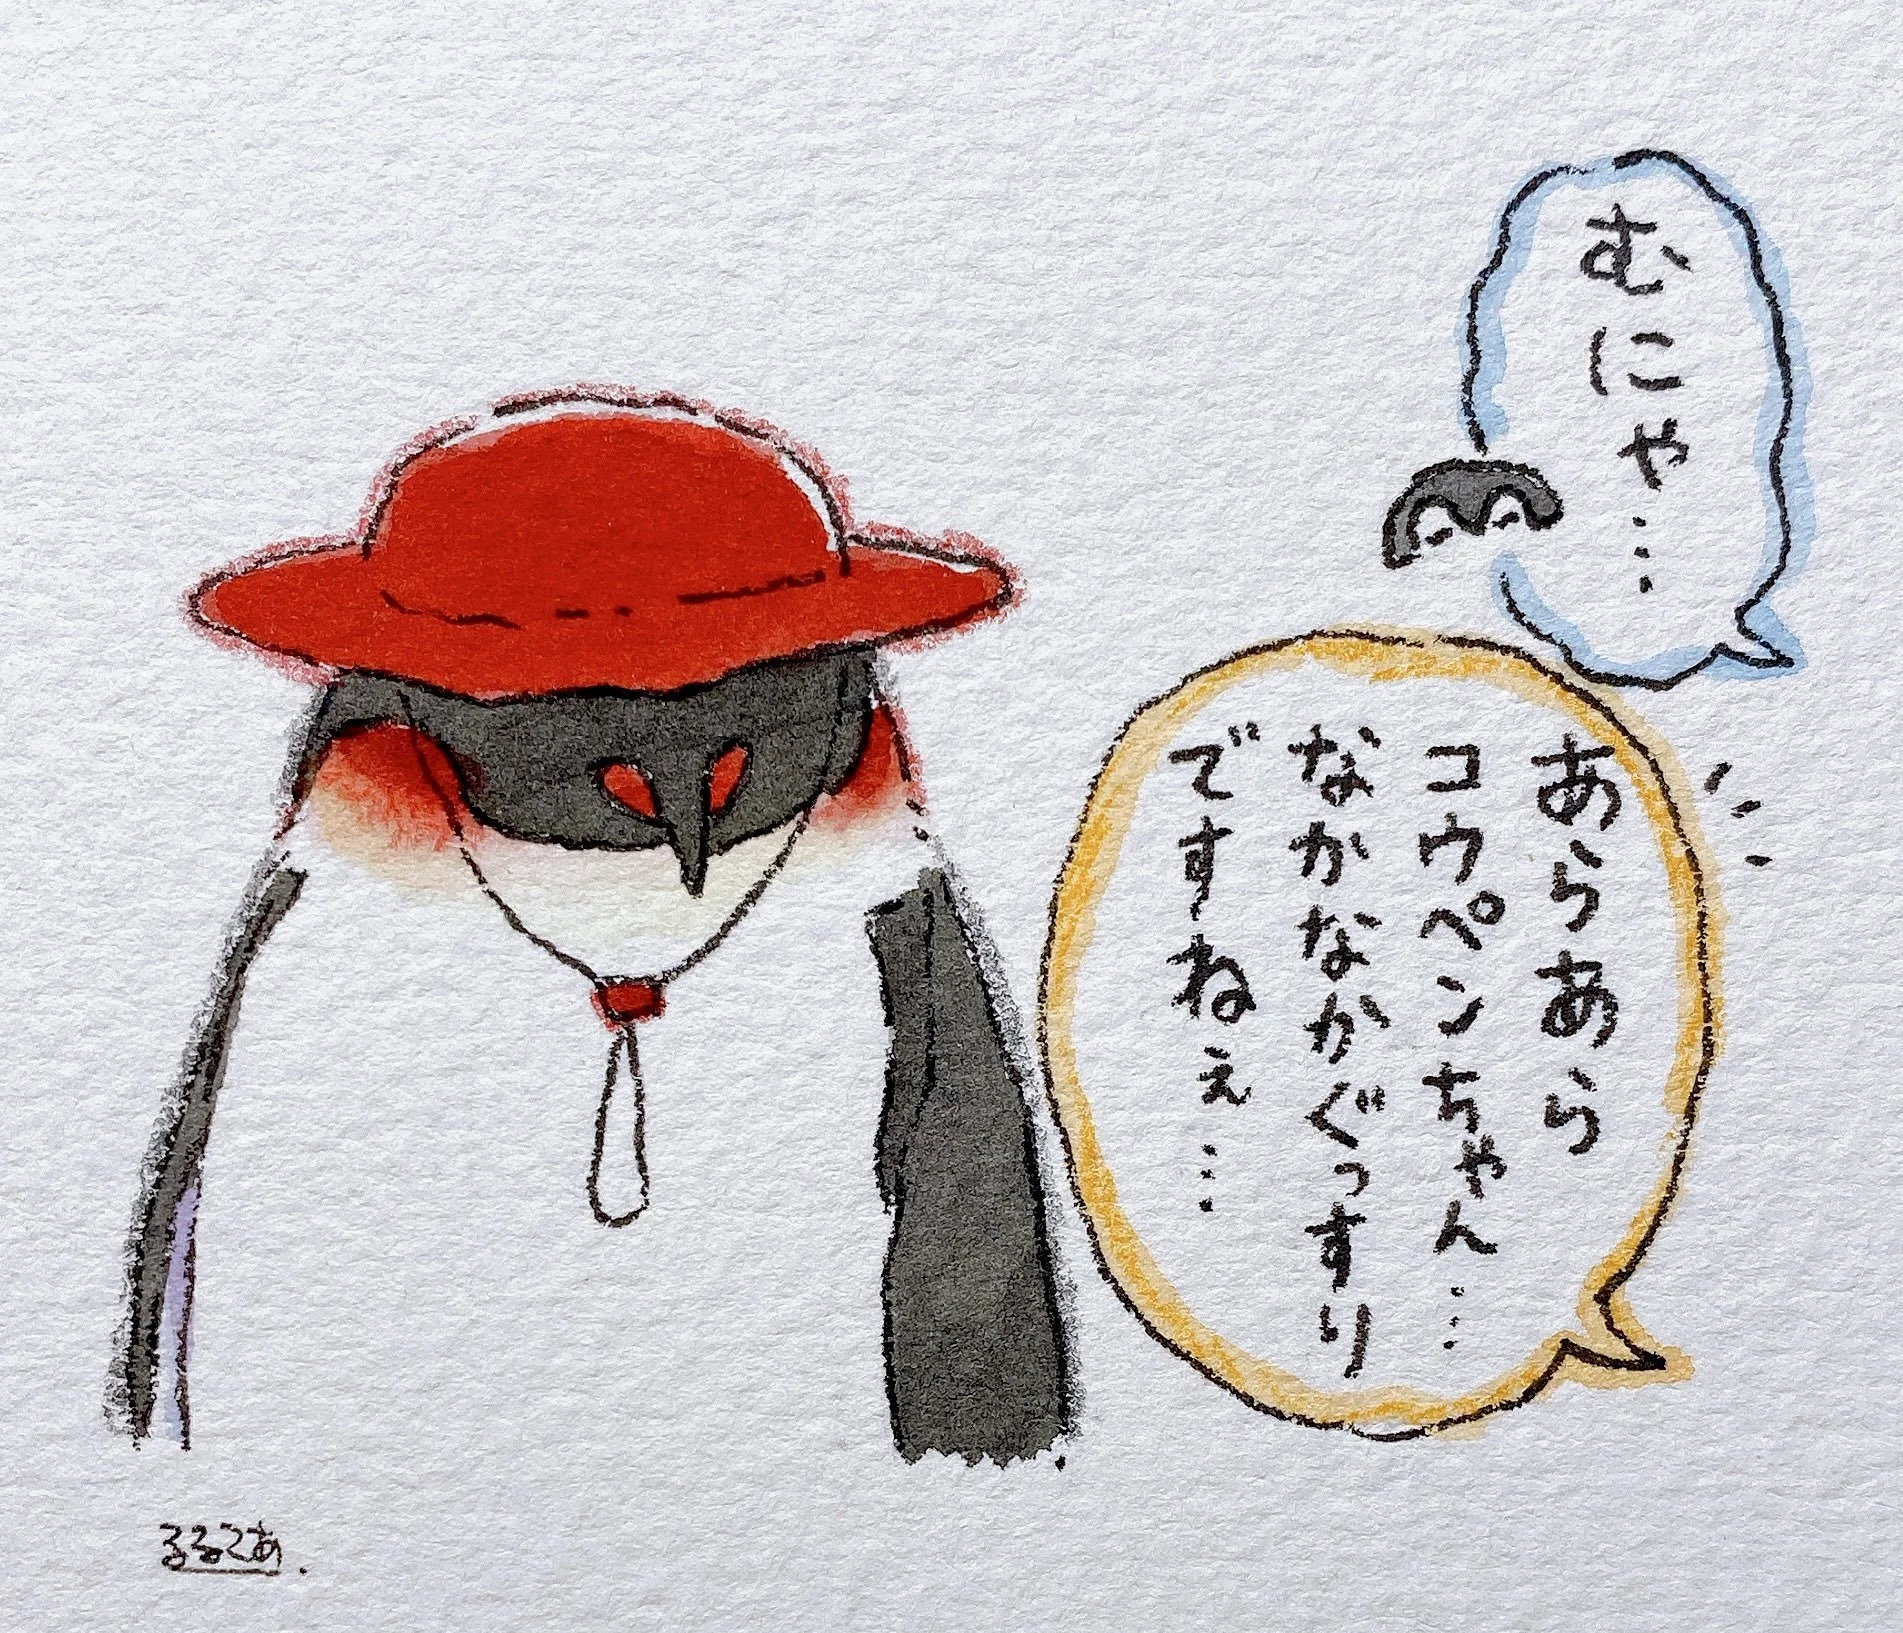 むにゃ…
あらあら
コウペンちゃん…
なかなかぐっすり
ですねぇ…
るるてあ.